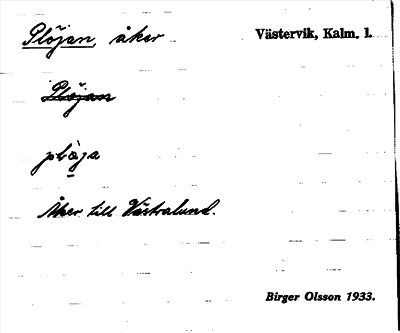 Plöjan, åker Västervik, Kalm. l.
Plöjan
Åker till Västralund.
Birger Olsson 1933.